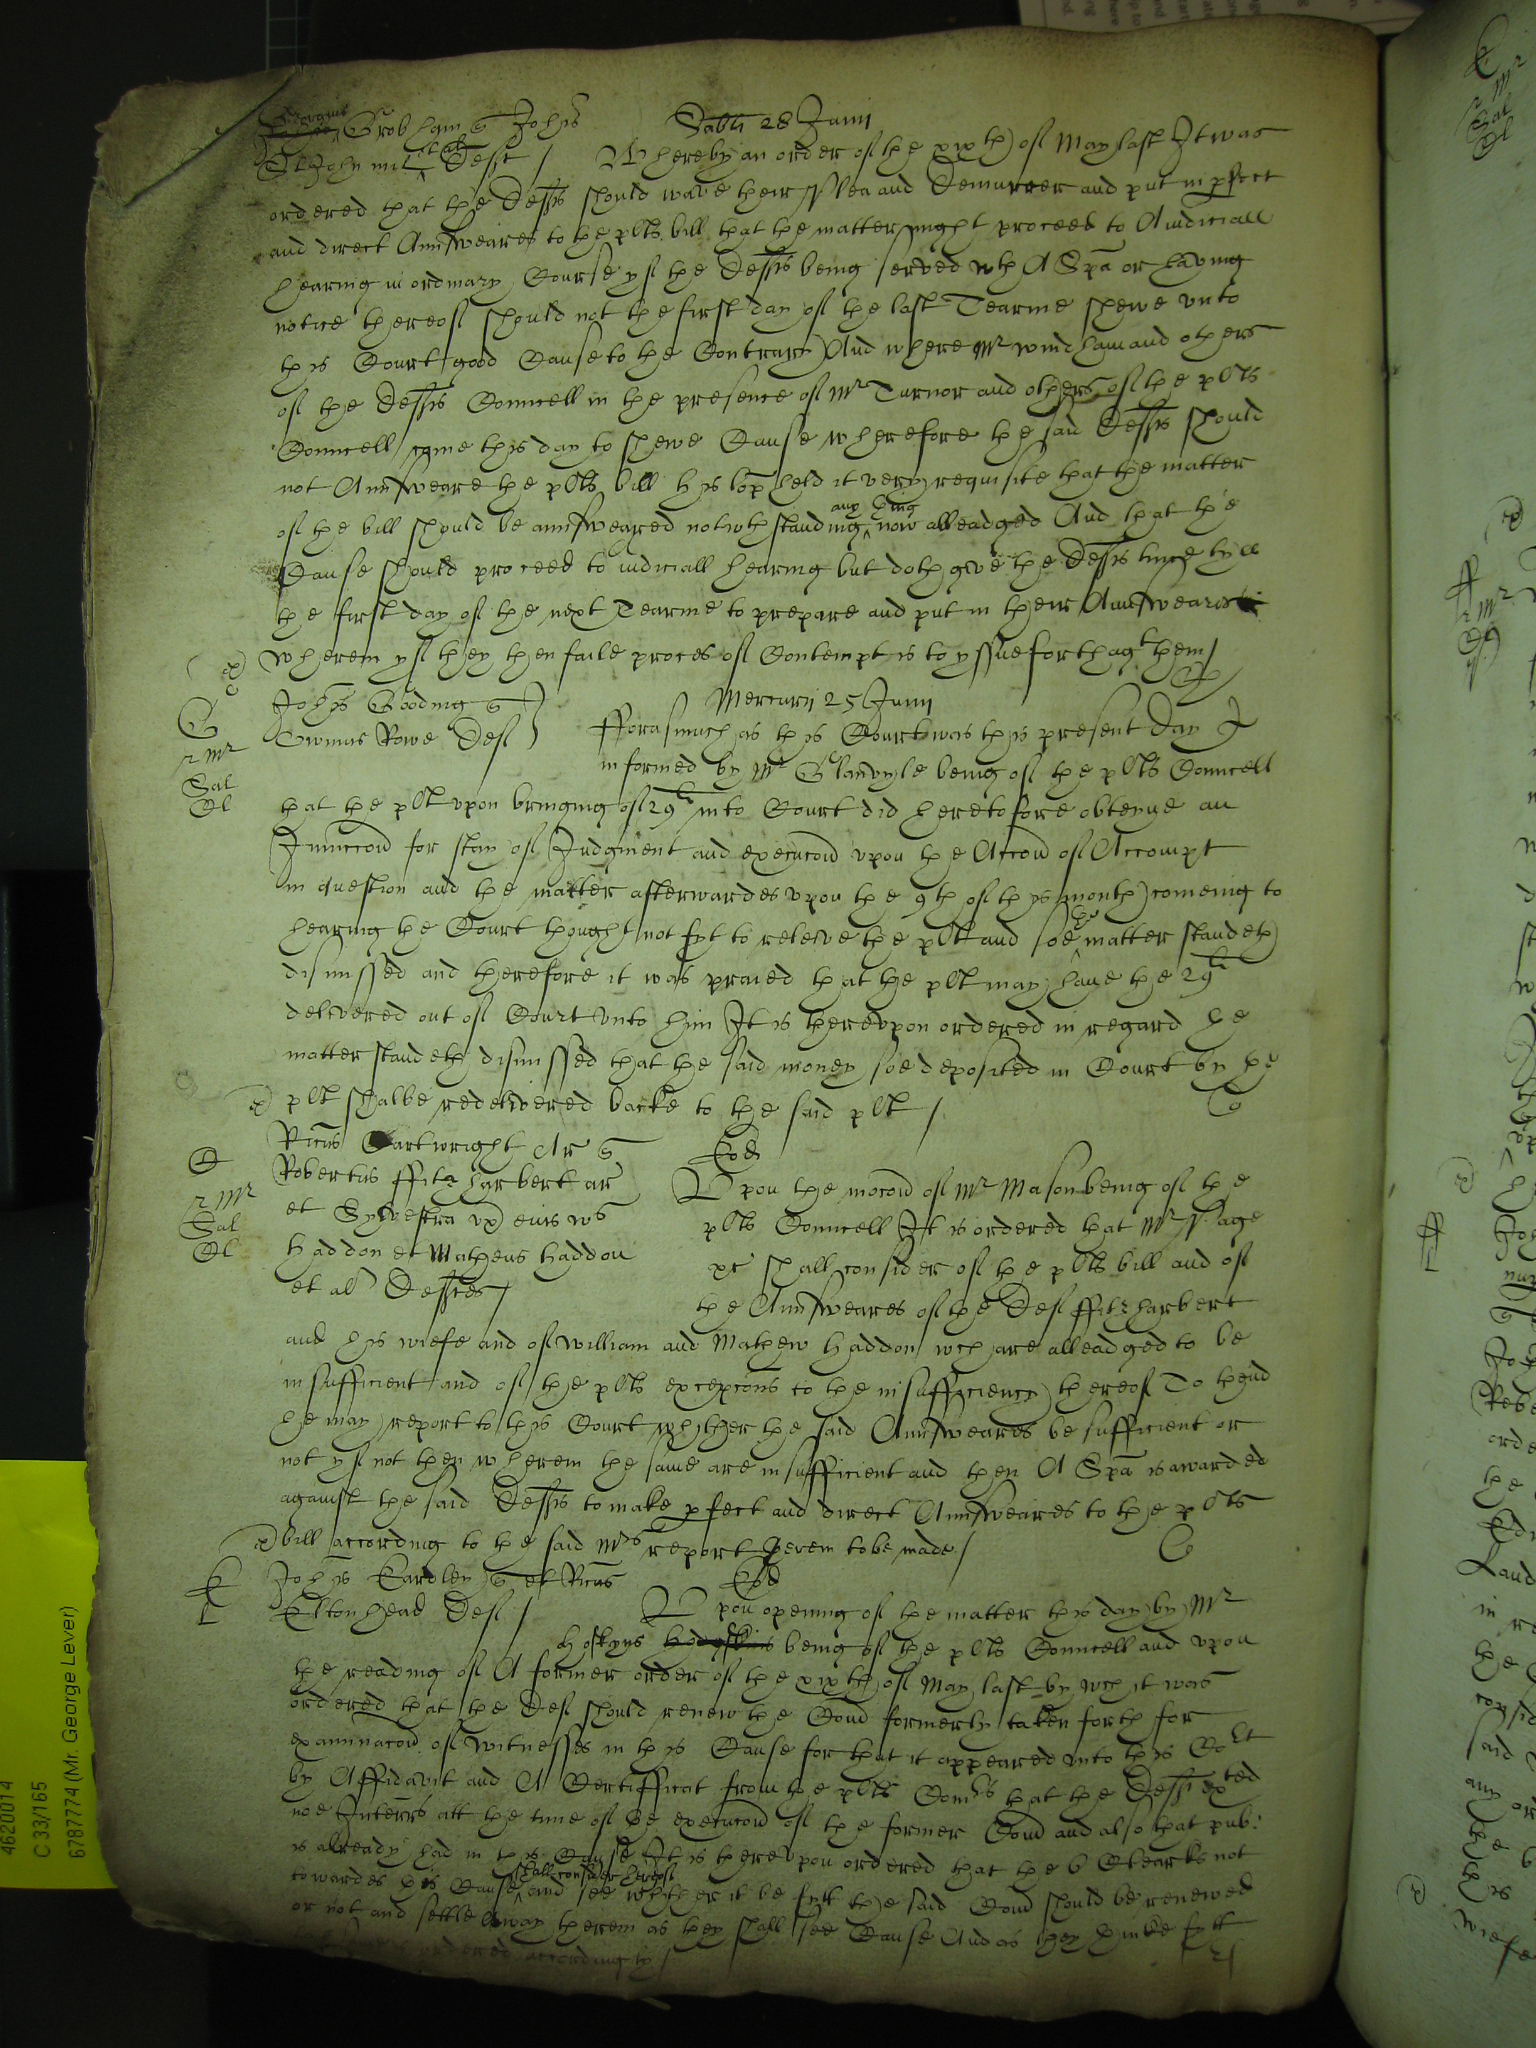 Grobham q Johes Sabti 28 Junii
St John mil et al Defts / Whereby an order of the xixth of May last It was
ordered that the Defts should wave their Plea and Demurrer and put in pfect
and direct Aunsweares to the plts bill that the matter might proceed to A iudiciall
hearing in ordinary Course yf the Defts being served wth A Spa or having
notice thereof should not the first day of the last Tearme shewe unto
this Court good Cause to the Contrary And where Mr windham and others
of the Defts Councell in the presence of Mr Turnor and others of the plts
Councell came this day to shewe Cause wherefore the said Defts should
not Aunsweare the plts bill his lop held it very requisite that the matter
of the bill should be aunsweared notwthstanding any thing now alleadged And that the
Cause should proceed to iudiciall hearing but doth give the Defts time tyll
the first day of the next Tearme to prepare and put in their Aunsweares
wherein yf they then faile proces of Contempt is to yssue forth agt them /
Johes Gooding q Mercurii 25 Junii
Thomas Rowe Def fforasmuch as this Court was this present day
r Mr informed by Mr Glanvyle being of the plts Councell
Sal
that the plt upon bringing of 29li into Court did heretofore obteyne an
Iniunccon for stay of Judgment and execucon upon the Accon of Accompt
in question and the matter afterwardes upon the 9th of this month comeing to
hearing the Court thought not fyt to releive the plt and soe the matter standeth
dismissed and therefore it was praied that the plt may have the 29li
delivered out of Court unto him It is thereupon ordered in regard the
matter standeth dismissed that the said money soe deposited in Court by the
plt shalbe redelivered backe to the said plt /
Ricus Cartwright Ar q Eod
Robertus ffitzharbert ar Upon the mocon of Mr Mason being of the
r Mr et Sylvestra ux eius ws plts Councell It is ordered that Mr Page
Sal
haddon et Matheus haddon xc shall consider of the plts bill and of
et al Deftes / the Aunsweares of the Def ffitzharbert
and his wiefe and of william and Mathew haddon wch are alleadged to be
insufficient and of the plts excepcons to the insufficiency thereof To thend
he may report to this Court whither the said Aunsweares be sufficient or
not yf not then wherein the same are insufficient and then A Spa is awarded
against the said Defts to make pfect and direct Aunsweares to the plts
bill according to the said Mrs report herein to be made /
Johes Eardley q et Ricus Eod
Eltonhead Def / Upon opening of the matter this day by Mr
hoskyns being of the plts Councell and upon
the reading of A former order of the xixth of May last by wch it was
ordered that the Def should renew the Comn formerly taken forth for
examinacon of witnesses in this Cause for that it appeared unto this Cort
by Affidavit and A Certifficat from the plts Comrs that the Deft exted
noe Interrs att the time of the execucon of the former Comn and also that pub:
is already had in this Cause It is thereupon ordered that the 6 Clearks not
towardes this Cause shall consider hereof and see whither it be fytt the said Comn should be renewed
or not and settle away therein as they shall see Cause And as they thinke fytt
ordered accordingly /
4620014
C 33/165
6787774 (Mr. George Lever)